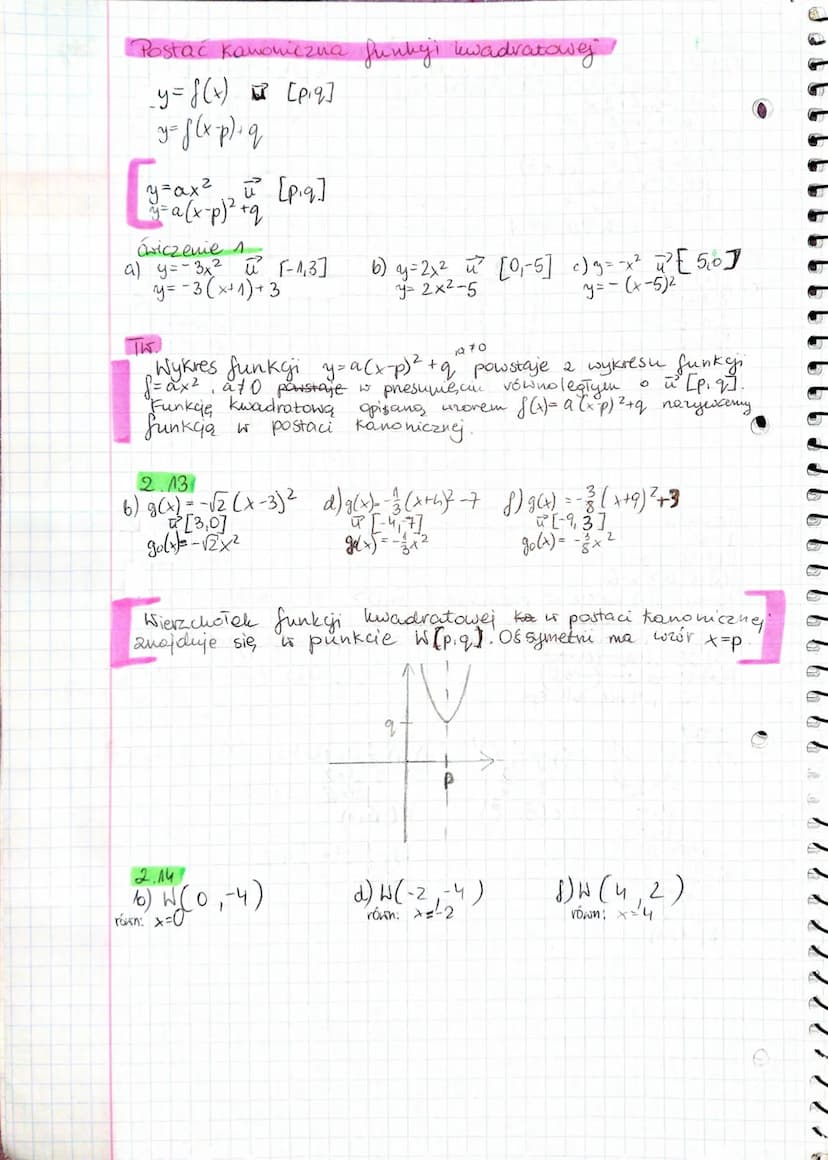 Postać kanoniczna funkcji kwadratowej
y=f(x) u⃗ [p,q]
y=f(x-p)+q
y=ax² u⃗ [p,q]
y=a(x-p)²+q
ćwiczenie 1
a) y=-3x² u⃗ [-1,3] b) y=2x² u⃗ [0,-5] c) y=-x² u⃗ [5,0]
y=-3(x+1)+3 y=2x²-5 y=-(x-5)²
Tw.
Wykres funkcji y=a(x-p)²+q, a≠0 powstaje z wykresu funkcji
f=ax², a≠0 powstaje w przesunięciu równoległym o u⃗ [p,q].
Funkcję kwadratową opisaną wzorem f(x)=a(x-p)²+q nazywamy
funkcją w postaci kanonicznej.
2.13
b) g(x)=-√2(x-3)² d) g(x)=-1/3(x+4)²-7 f) g(x)=-3/8(x+9)²+3
u⃗ [3,0] u⃗ [-4,-7] u⃗ [-9,3]
g₀(x)=-√2x² g₀(x)=-1/3x² g₀(x)=-3/8x²
Wierzchołek funkcji kwadratowej w postaci kanonicznej
znajduje się w punkcie W[p,q]. Oś symetrii ma wzór x=p.
q
p
2.14
b) W(0,-4) d) W(-2,-4) f) W(4,2)
równ: x=0 równ: x=-2 równ: x=4